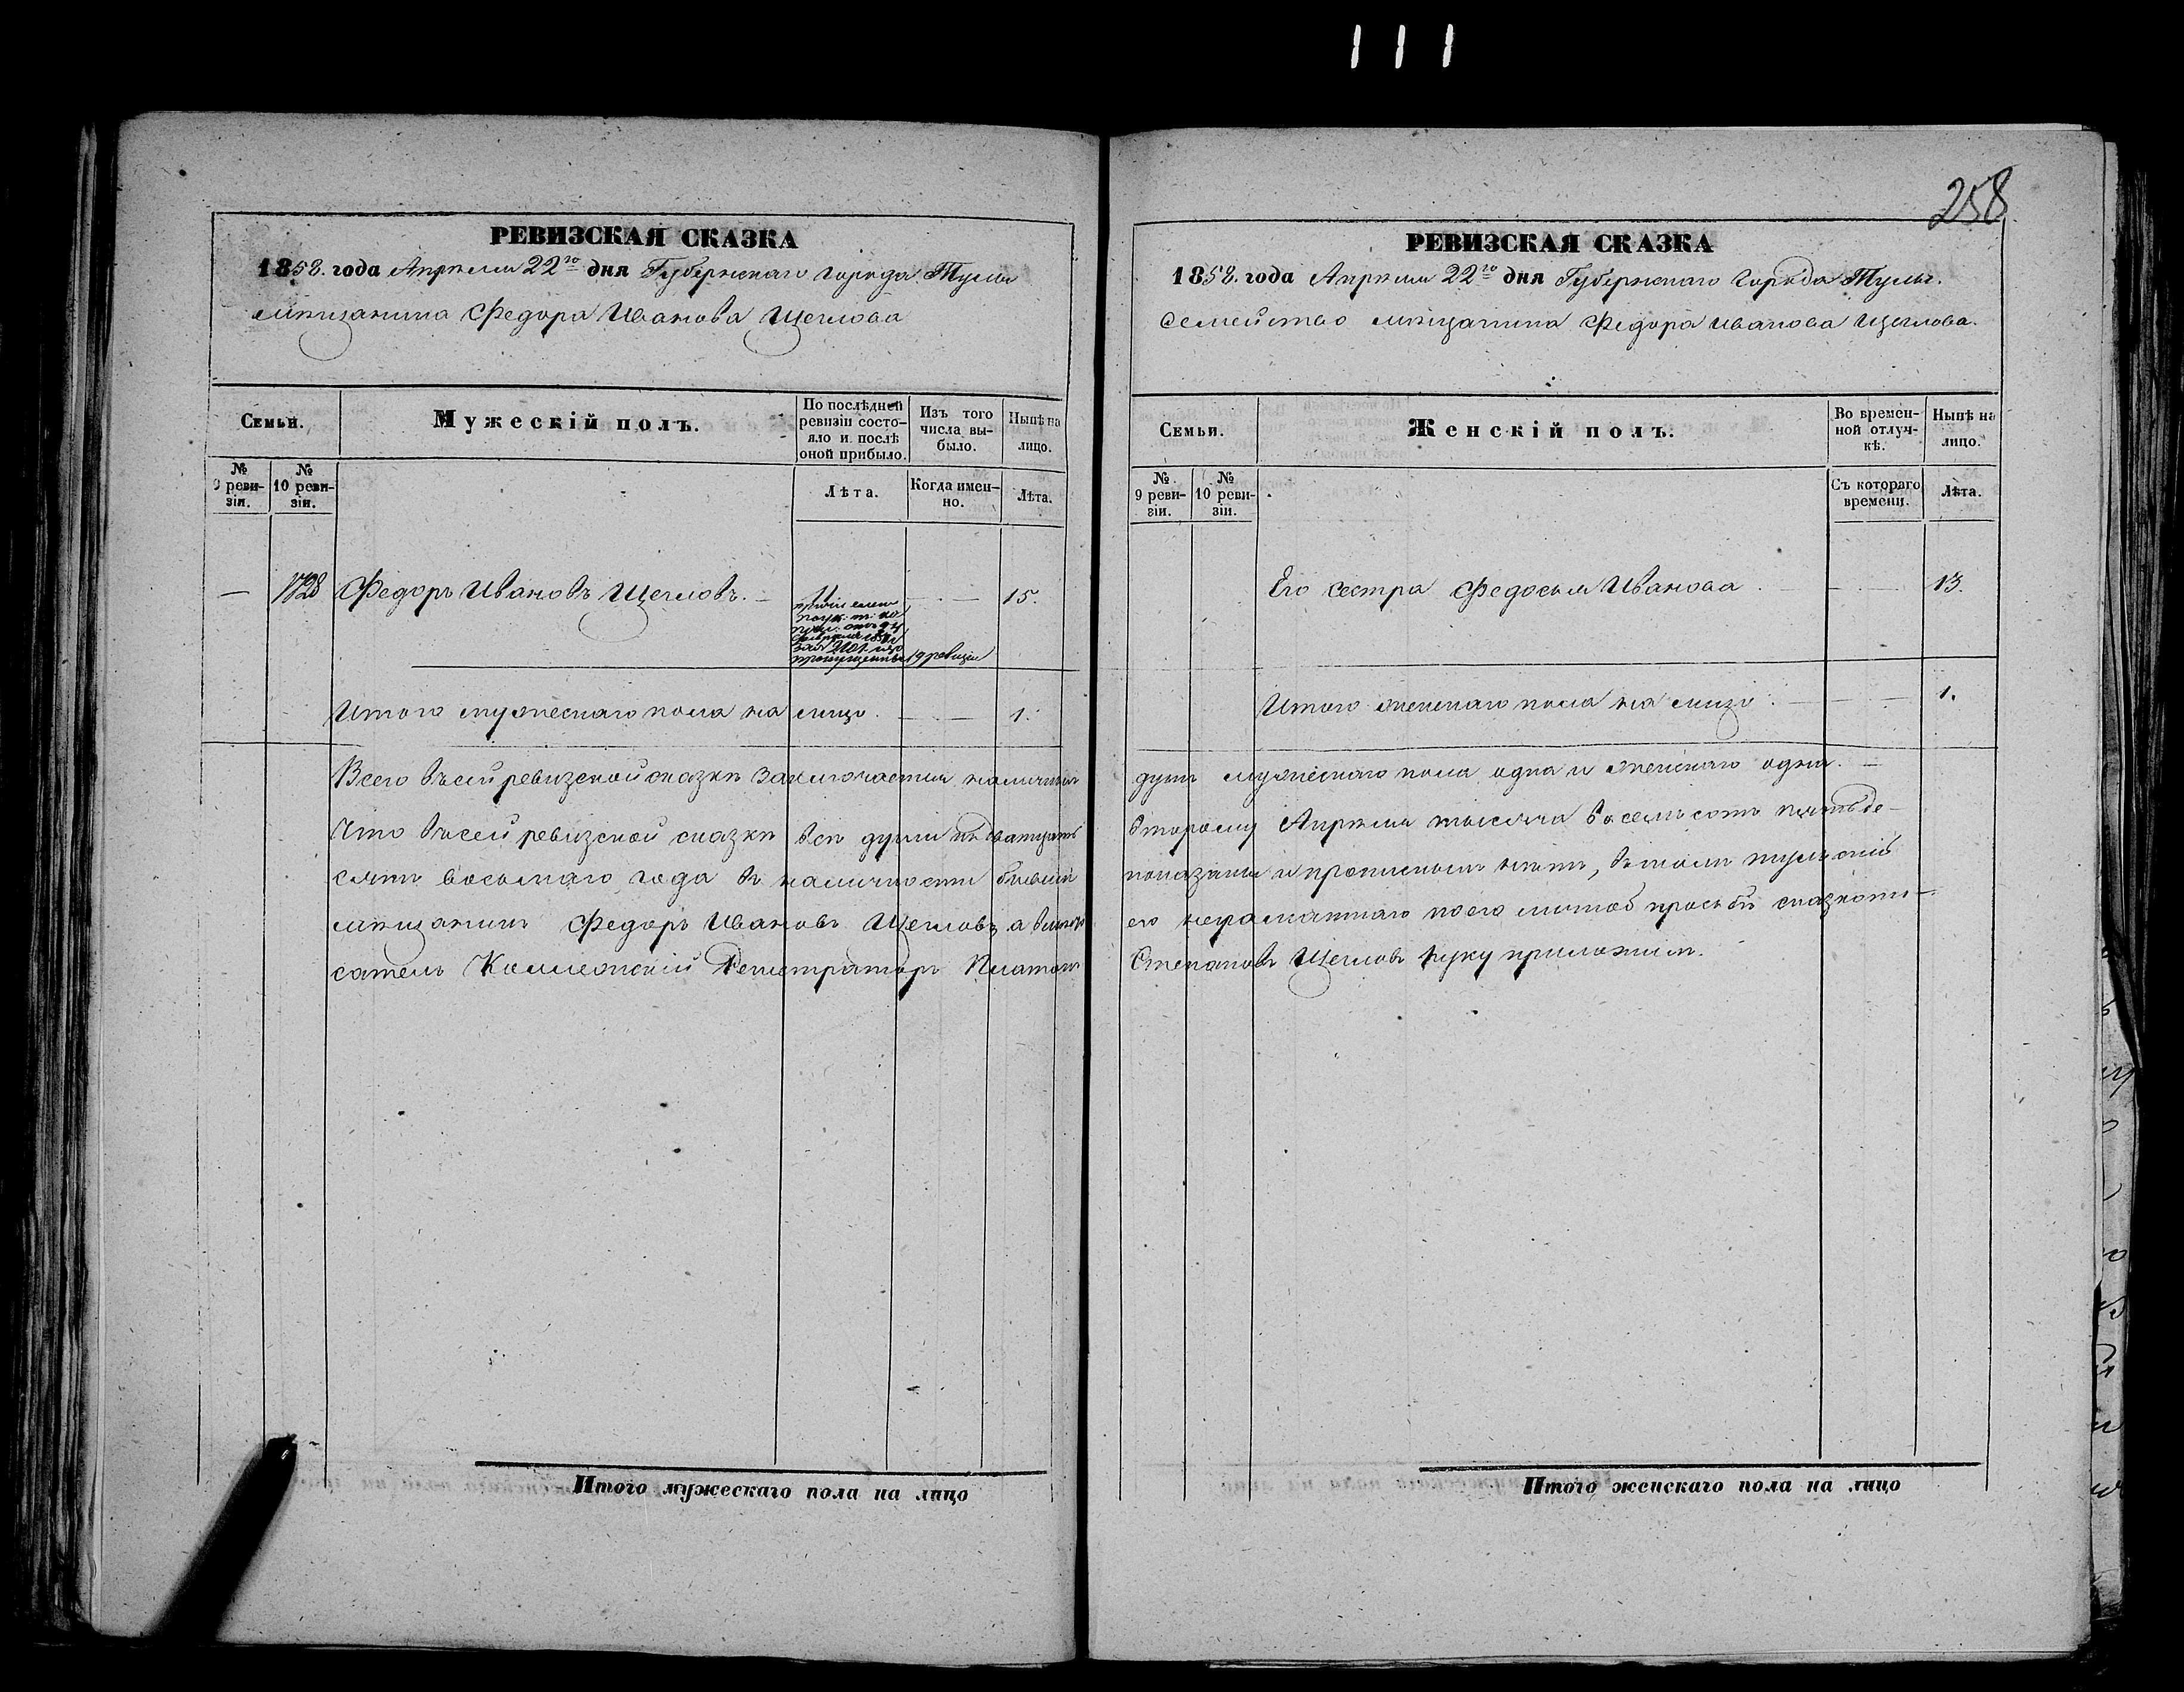 111
258
РЕВИЗСКАЯ СКАЗКА
1858. года Апрѣля 22го дня Губернскаго города Тулы
мѣщанина Федора Иванова Щеглова
Семьи.
Мужескій полъ.
По послѣдней ревизіи состояло и послѣ оной прибыло.
Изъ того числа выбыло.
Нынѣ на лицо.
№ 9 ревизіи.
№ 10 ревизіи.
Лѣта.
Когда именно.
Лѣта.
— 1728 Федоръ Ивановъ Щегловъ. — 15.
19 ревизіи
Итого мужескаго пола на лицо. — — 1.
Всего въ сей ревизской сказкѣ заключается наличныхъ
Что въ сей ревизской сказкѣ всѣ души къ двадцать
сятъ восьмаго года въ наличности бывшія
мѣщанинъ Федоръ Ивановъ Щегловъ а вмѣсто
сатель Коллежскій Регистраторъ Платонъ
Итого мужескаго пола на лицо
РЕВИЗСКАЯ СКАЗКА
1858. года Апрѣля 22го дня Губернскаго города Тулы.
Семейство мѣщанина Федора Иванова Щеглова.
Семьи.
Женскій полъ.
Во временной отлучкѣ.
Нынѣ на лицо.
№ 9 ревизіи.
№ 10 ревизіи.
Съ котораго времени.
Лѣта.
Его сестра Федосья Иванова — — 13.
Итого женскаго пола на лицо. — — 1.
душъ мужескаго пола одна и женскаго одна. —
второму Апрѣля тысяча восемьсотъ пятьде-
показаны и прописныхъ нѣтъ, въ томъ тульскій
его неграмотнаго по его личной просьбѣ сказкопи-
Степановъ Щегловъ руку приложилъ.
Итого женскаго пола на лицо